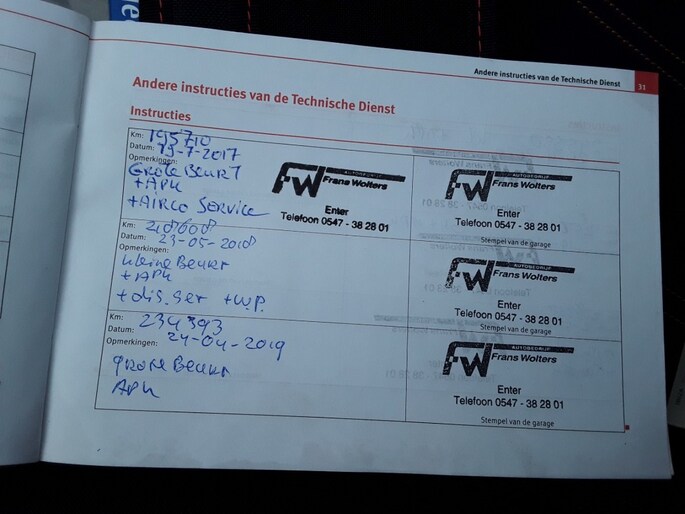 Andere instructies van de Technische Dienst
31
Andere instructies van de Technische Dienst
Instructies
Km: 195710
Datum: 19-7-2017
Opmerkingen:
Grote Beurt
+ APK
+ Airco Service
AUTOBEDRIJF
FW Frans Wolters
Enter
Telefoon 0547 - 38 28 01
AUTOBEDRIJF
FW Frans Wolters
Enter
Telefoon 0547 - 38 28 01
Stempel van de garage
Km: 218608
Datum: 23-05-2018
Opmerkingen:
kleine Beurt
+ APK
+ dis.ser + W.P.
AUTOBEDRIJF
FW Frans Wolters
Enter
Telefoon 0547 - 38 28 01
Stempel van de garage
Km: 234393
Datum: 24-04-2019
Opmerkingen:
grote Beurt
APK
AUTOBEDRIJF
FW Frans Wolters
Enter
Telefoon 0547 - 38 28 01
Stempel van de garage